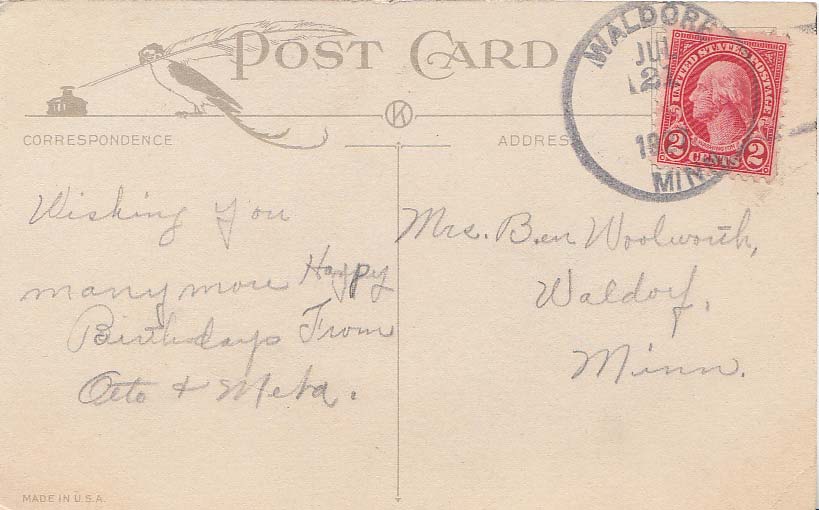 POST CARD
WALDORF
JUL
21
MIN
UNITED STATES POSTAGE
2 CENTS 2
K
CORRESPONDENCE
ADDRESS
Wishing you
many more Happy
Birthdays From
Otto & Meta.
Mrs. Ben Woolworth,
Waldorf,
Minn.
MADE IN U.S.A.